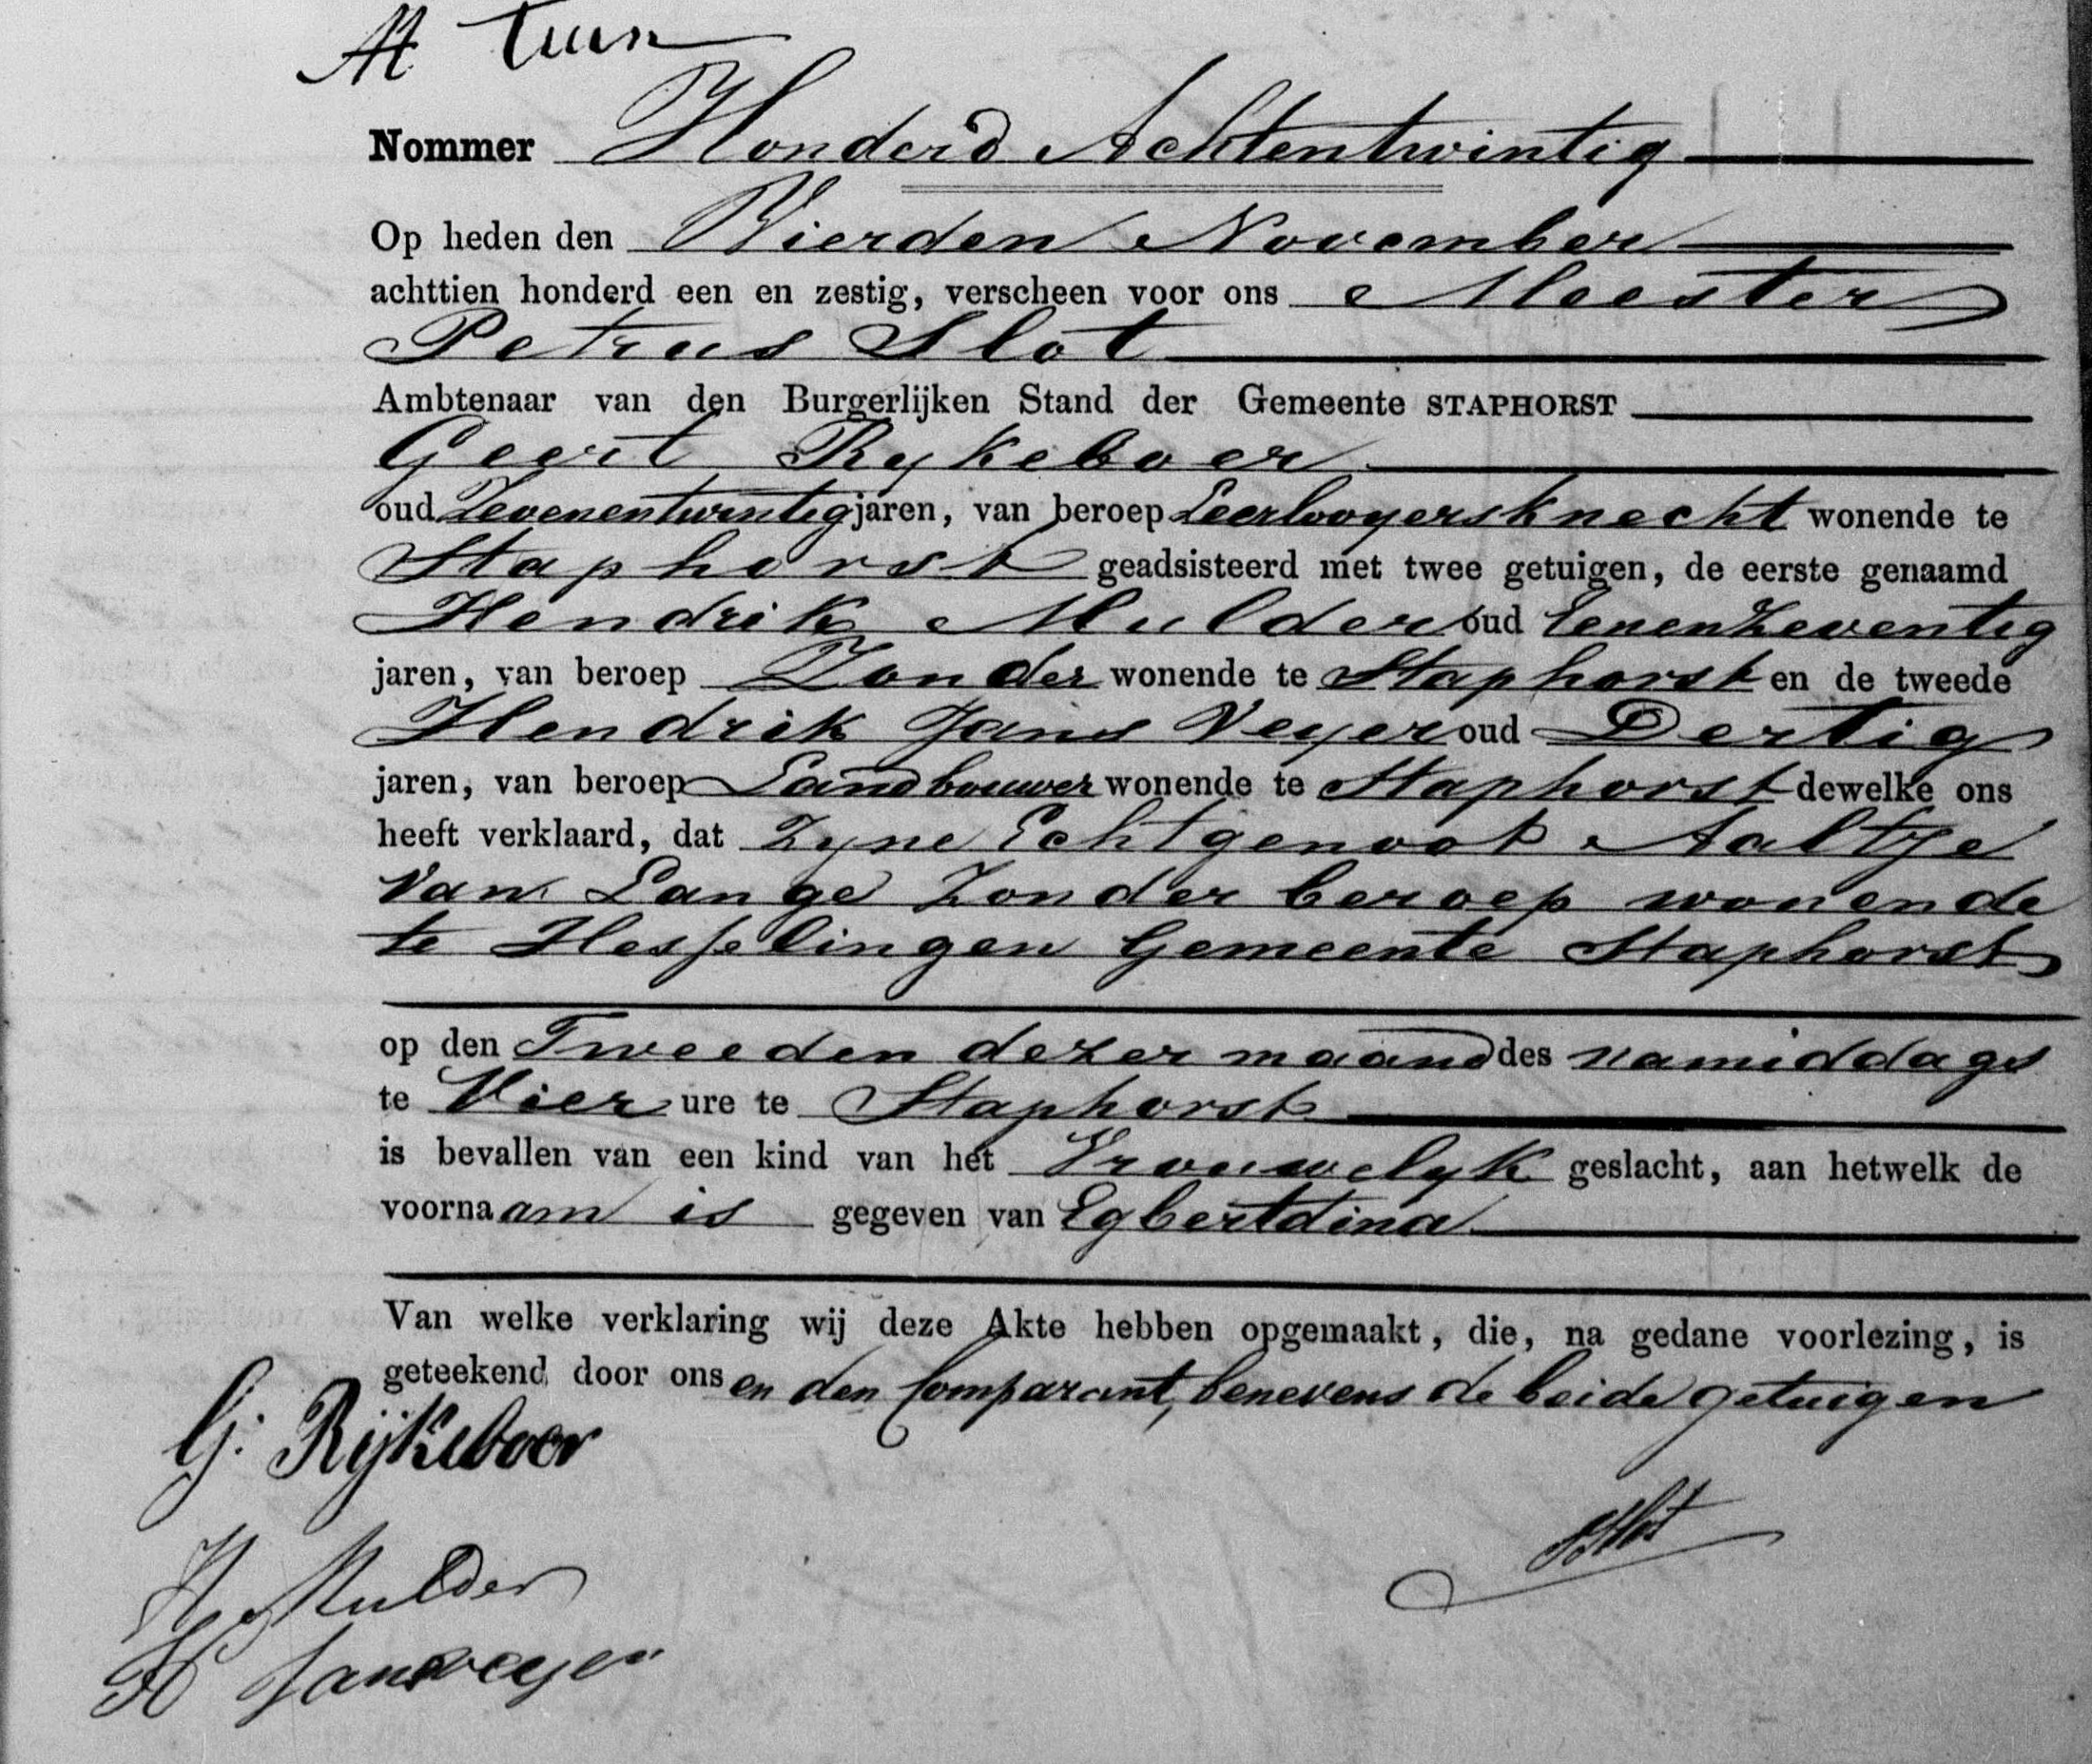 M tuin
Nommer Honderd Achtentwintig
Op heden den Vierden November
achttien honderd een en zestig, verscheen voor ons Meester
Petrus Slot
Ambtenaar van den Burgerlijken Stand der Gemeente STAPHORST
Geert Rykeboer
oud Zevenentwintig jaren, van beroep Leerlooyersknecht wonende te
Staphorst geadsisteerd met twee getuigen, de eerste genaamd
Hendrik Mulder oud Eenenzeventig
jaren, van beroep Zonder wonende te Staphorst en de tweede
Hendrik Jans Veyer oud Dertig
jaren, van beroep Landbouwer wonende te Staphorst dewelke ons
heeft verklaard, dat Zyne Echtgenoot Aaltje
van Lange Zonder beroep wonende
te Hesselingen Gemeente Staphorst
op den Tweeden dezer maand des namiddags
te Vier ure te Staphorst
is bevallen van een kind van het Vrouwelyk geslacht, aan hetwelk de
voornaam is gegeven van Egbertdina
Van welke verklaring wij deze Akte hebben opgemaakt, die, na gedane voorlezing, is
geteekend door ons en den Comparant, benevens de beide getuigen
G. Rijkeboer
H Mulder
H Jansveyer
PSlot